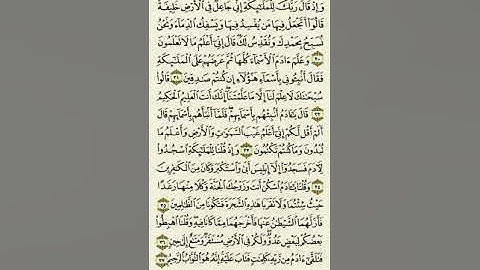 وَإِذْ قَالَ رَبُّكَ لِلْمَلَٰٓئِكَةِ إِنِّى جَاعِلٌ فِى ٱلْأَرْضِ خَلِيفَةً
قَالُوٓا۟ أَتَجْعَلُ فِيهَا مَن يُفْسِدُ فِيهَا وَيَسْفِكُ ٱلدِّمَآءَ وَنَحْنُ
نُسَبِّحُ بِحَمْدِكَ وَنُقَدِّسُ لَكَ قَالَ إِنِّىٓ أَعْلَمُ مَا لَا تَعْلَمُونَ
٣٠ وَعَلَّمَ ءَادَمَ ٱلْأَسْمَآءَ كُلَّهَا ثُمَّ عَرَضَهُمْ عَلَى ٱلْمَلَٰٓئِكَةِ
فَقَالَ أَنۢبِـُٔونِى بِأَسْمَآءِ هَٰٓؤُلَآءِ إِن كُنتُمْ صَٰدِقِينَ ٣١ قَالُوا۟
سُبْحَٰنَكَ لَا عِلْمَ لَنَآ إِلَّا مَا عَلَّمْتَنَآ إِنَّكَ أَنتَ ٱلْعَلِيمُ ٱلْحَكِيمُ
٣٢ قَالَ يَٰٓـَٔادَمُ أَنۢبِئْهُم بِأَسْمَآئِهِمْ فَلَمَّآ أَنۢبَأَهُم بِأَسْمَآئِهِمْ قَالَ
أَلَمْ أَقُل لَّكُمْ إِنِّىٓ أَعْلَمُ غَيْبَ ٱلسَّمَٰوَٰتِ وَٱلْأَرْضِ وَأَعْلَمُ مَا
تُبْدُونَ وَمَا كُنتُمْ تَكْتُمُونَ ٣٣ وَإِذْ قُلْنَا لِلْمَلَٰٓئِكَةِ ٱسْجُدُوا۟
لِـَٔادَمَ فَسَجَدُوٓا۟ إِلَّآ إِبْلِيسَ أَبَىٰ وَٱسْتَكْبَرَ وَكَانَ مِنَ ٱلْكَٰفِرِينَ
٣٤ وَقُلْنَا يَٰٓـَٔادَمُ ٱسْكُنْ أَنتَ وَزَوْجُكَ ٱلْجَنَّةَ وَكُلَا مِنْهَا رَغَدًا
حَيْثُ شِئْتُمَا وَلَا تَقْرَبَا هَٰذِهِ ٱلشَّجَرَةَ فَتَكُونَا مِنَ ٱلظَّٰلِمِينَ ٣٥
فَأَزَلَّهُمَا ٱلشَّيْطَٰنُ عَنْهَا فَأَخْرَجَهُمَا مِمَّا كَانَا فِيهِ وَقُلْنَا ٱهْبِطُوا۟
بَعْضُكُمْ لِبَعْضٍ عَدُوٌّ وَلَكُمْ فِى ٱلْأَرْضِ مُسْتَقَرٌّ وَمَتَٰعٌ إِلَىٰ حِينٍ ٣٦
فَتَلَقَّىٰٓ ءَادَمُ مِن رَّبِّهِۦ كَلِمَٰتٍ فَتَابَ عَلَيْهِ إِنَّهُۥ هُوَ ٱلتَّوَّابُ ٱلرَّحِيمُ ٣٧